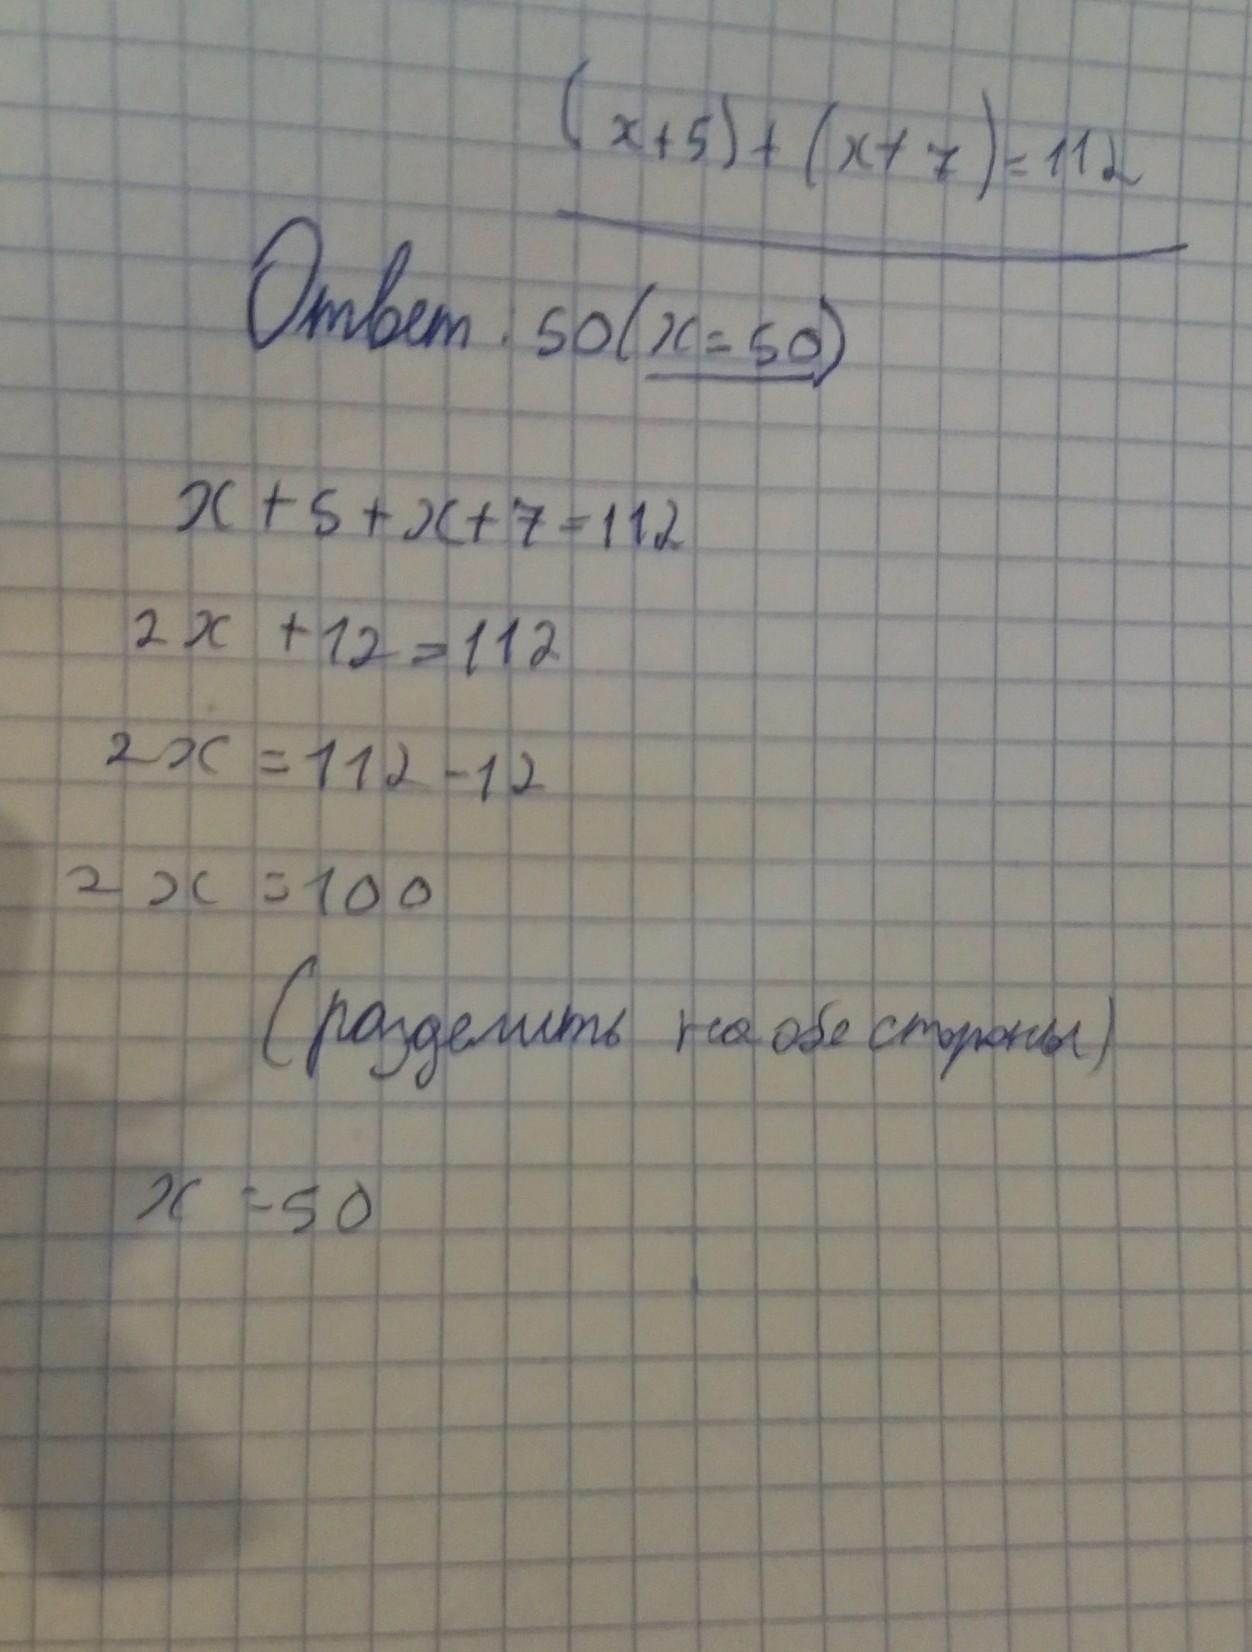 (x+5)+(x+7)=112
Ответ: 50(x=50)
x+5+x+7=112
2x +12=112
2x =112-12
2x =100
(разделить на обе стороны)
x =50